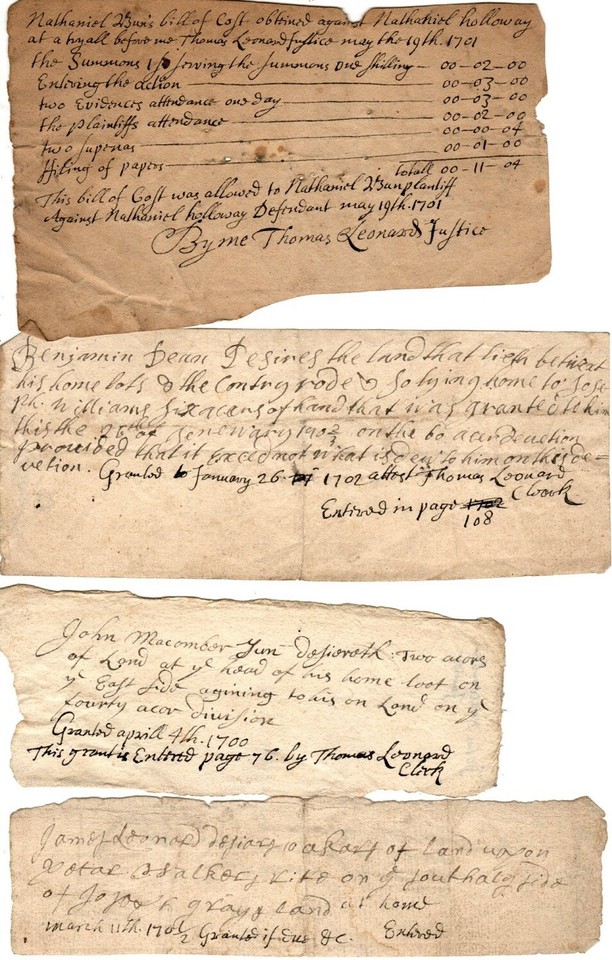 Nathaniel Bun's bill of Cost obtined against Nathaniel holloway
at a tryall before me Thomas Leonard Justice may the 19th. 1701
the Summons 1/0 serving the Summons one shilling — 00-02-00
Entering the action — 00-03-00
two Evidences attendance one day — 00-03-00
the plaintiffs attendance — 00-02-00
two supenas — 00-00-04
ffiling of papers — 00-01-00
Totall 00-11-04
This bill of Cost was allowed to Nathaniel Bun plantiff
Against Nathaniel holloway Defendant may 19th. 1701
By me Thomas Leonard Justice
Benjamin Dean Desires the land that lieth betwext
his home lots & the Contry rode & so lying home to Jose
ph. Williams six acers of land that was granted to him
this the of Jenewary 170 on the 60 acer devetion
provided that it Exeed not what is dew to him on this de-
vetion. Granted January 26. 1702 attest Thomas Leonard
Cleark
Entired in page 1702
108
John Macomber Jun desiereth: Two acors
of Land at ye head of his home loot on
ye East side agining to his on Land on ye
fourty acor division
Granted aprill 4th. 1700
This grant is Entered page 76. by Thomas Leonard
Clerk
James Leonard desiars akars of land upon
Petar Walkers rite on ye south side
of grays land at home
march 11th. 170 Granted if due &c. Entered